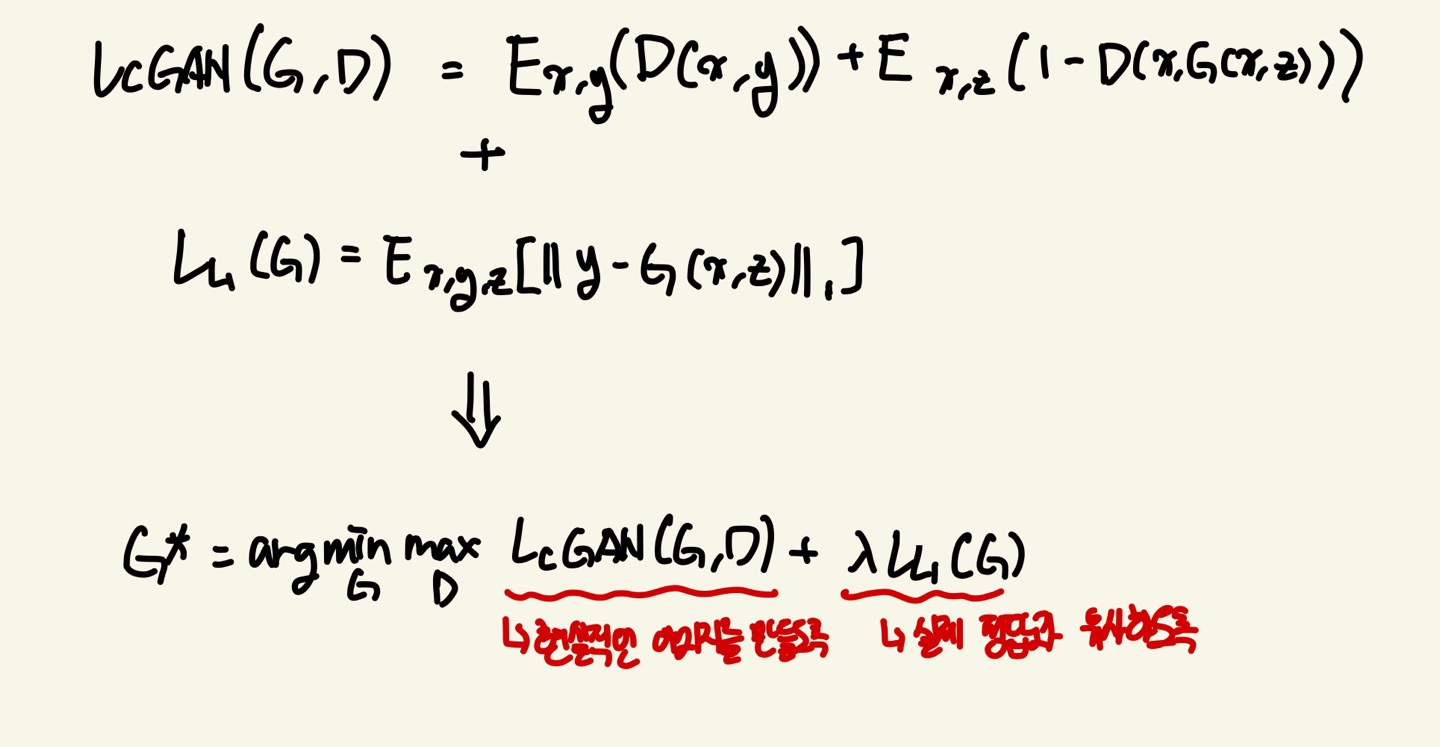 LcGAN(G,D) = E x,y(D(x,y)) + E x,z(1-D(x,G(x,z)))
+
L L1 (G) = E x,y,z[‖y-G(x,z)‖1]
⇓
G* = arg min G max D LcGAN(G,D) + λL L1(G)
↳ 현실적인 이미지를 만들도록 ↳ 실제 정답과 유사하도록